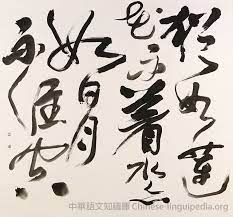 猶如蓮
花不着水
如日月
不住空
中華語文知識庫 Chinese-linguipedia.org